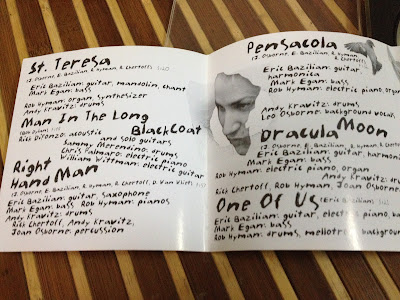 St. Teresa
(J. Osborne, E. Bazilian, R. Hyman, R. Chertoff)
Eric Bazilian: guitar, mandolin, chant
Mark Egan: bass
Rob Hyman: organ, synthesizer
Andy Kravitz: drums
Man In The Long
Black Coat
(Bob Dylan)
Rick DiFonzo: acoustic
and solo guitars
Sammy Merendino: drums
Chris Palmaro: electric piano
William Wittman: electric guitar
Right
Hand Man
(J. Osborne, E. Bazilian, R. Hyman, R. Chertoff, D. Van Vliet)
Eric Bazilian: guitar, saxophone
Mark Egan: bass Rob Hyman: pianos
Andy Kravitz: drums
Rick Chertoff, Andy Kravitz,
Joan Osborne: percussion
Pensacola
(J. Osborne, E. Bazilian, R. Hyman, R. Chertoff)
Eric Bazilian: guitar
harmonica
Mark Egan: bass
Rob Hyman: electric piano, organ
Andy Kravitz: drums
Leo Osborne: background vocal
Dracula Moon
(J. Osborne, E. Bazilian, R. Hyman
Eric Bazilian: guitar, harmonica
Mark Egan: bass
Rob Hyman: electric piano, organ
Andy Kravitz: drums
Rick Chertoff, Rob Hyman, Joan Osborne:
One Of Us
(E. Bazilian)
Eric Bazilian: guitar, electric piano,
Mark Egan: bass
Rob Hyman: drums, mellotron, background